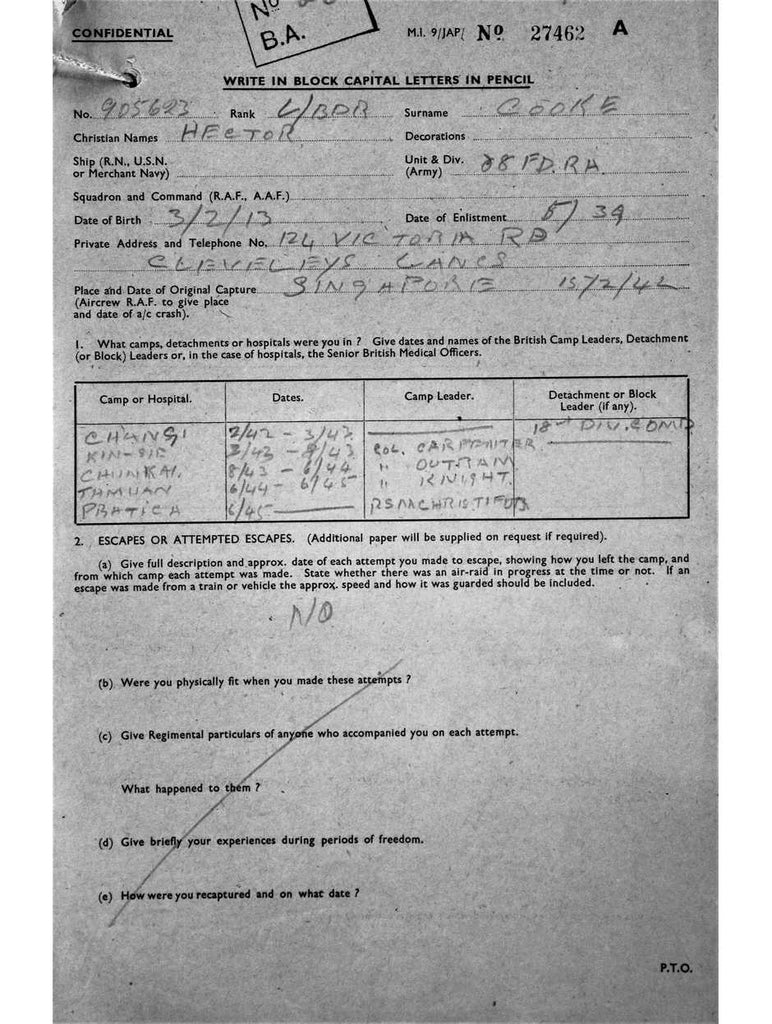 No
B.A.
CONFIDENTIAL
M.I. 9/JAP/ No 27462 A
WRITE IN BLOCK CAPITAL LETTERS IN PENCIL
No. 905623 Rank L/BDR Surname COOKE
Christian Names HECTOR Decorations
Ship (R.N., U.S.N.
or Merchant Navy)
Unit & Div. 88 FD.RA.
(Army)
Squadron and Command (R.A.F., A.A.F.)
Date of Birth 3/2/13 Date of Enlistment 5/39
Private Address and Telephone No. 124 VICTORIA RD
CLEVELEYS LANCS
Place and Date of Original Capture SINGAPORE 15/2/42
(Aircrew R.A.F. to give place
and date of a/c crash).
1. What camps, detachments or hospitals were you in ? Give dates and names of the British Camp Leaders, Detachment
(or Block) Leaders or, in the case of hospitals, the Senior British Medical Officers.
Camp or Hospital. Dates. Camp Leader. Detachment or Block
Leader (if any).
CHANGI 2/42 - 3/43 18th DIV.COMD
KIN-SIE 3/43 - 8/43 COL. CARPENTER
CHUNKAI. 8/43 - 6/44 " OUTRAM
TAMUAN 6/44 - 6/45 " KNIGHT.
PRATICA 6/45 RSM
2. ESCAPES OR ATTEMPTED ESCAPES. (Additional paper will be supplied on request if required).
(a) Give full description and approx. date of each attempt you made to escape, showing how you left the camp, and
from which camp each attempt was made. State whether there was an air-raid in progress at the time or not. If an
escape was made from a train or vehicle the approx. speed and how it was guarded should be included.
NO
(b) Were you physically fit when you made these attempts ?
(c) Give Regimental particulars of anyone who accompanied you on each attempt.
What happened to them ?
(d) Give briefly your experiences during periods of freedom.
(e) How were you recaptured and on what date ?
P.T.O.